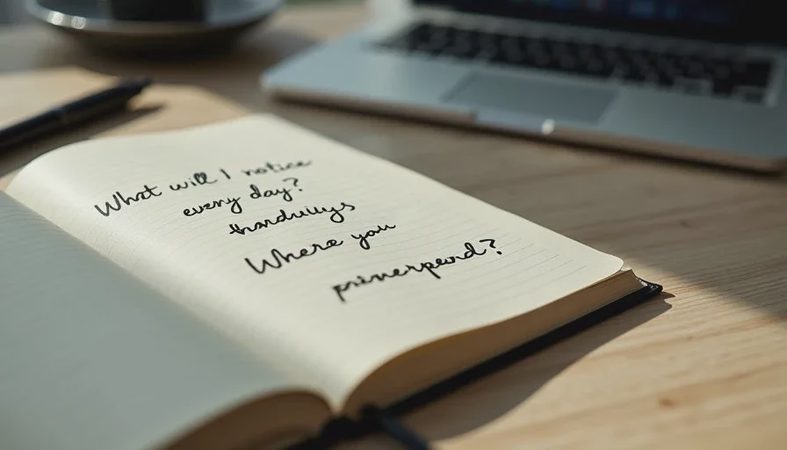 What will I notice
every day?
thardwiuys
Where you
prinerpervd?